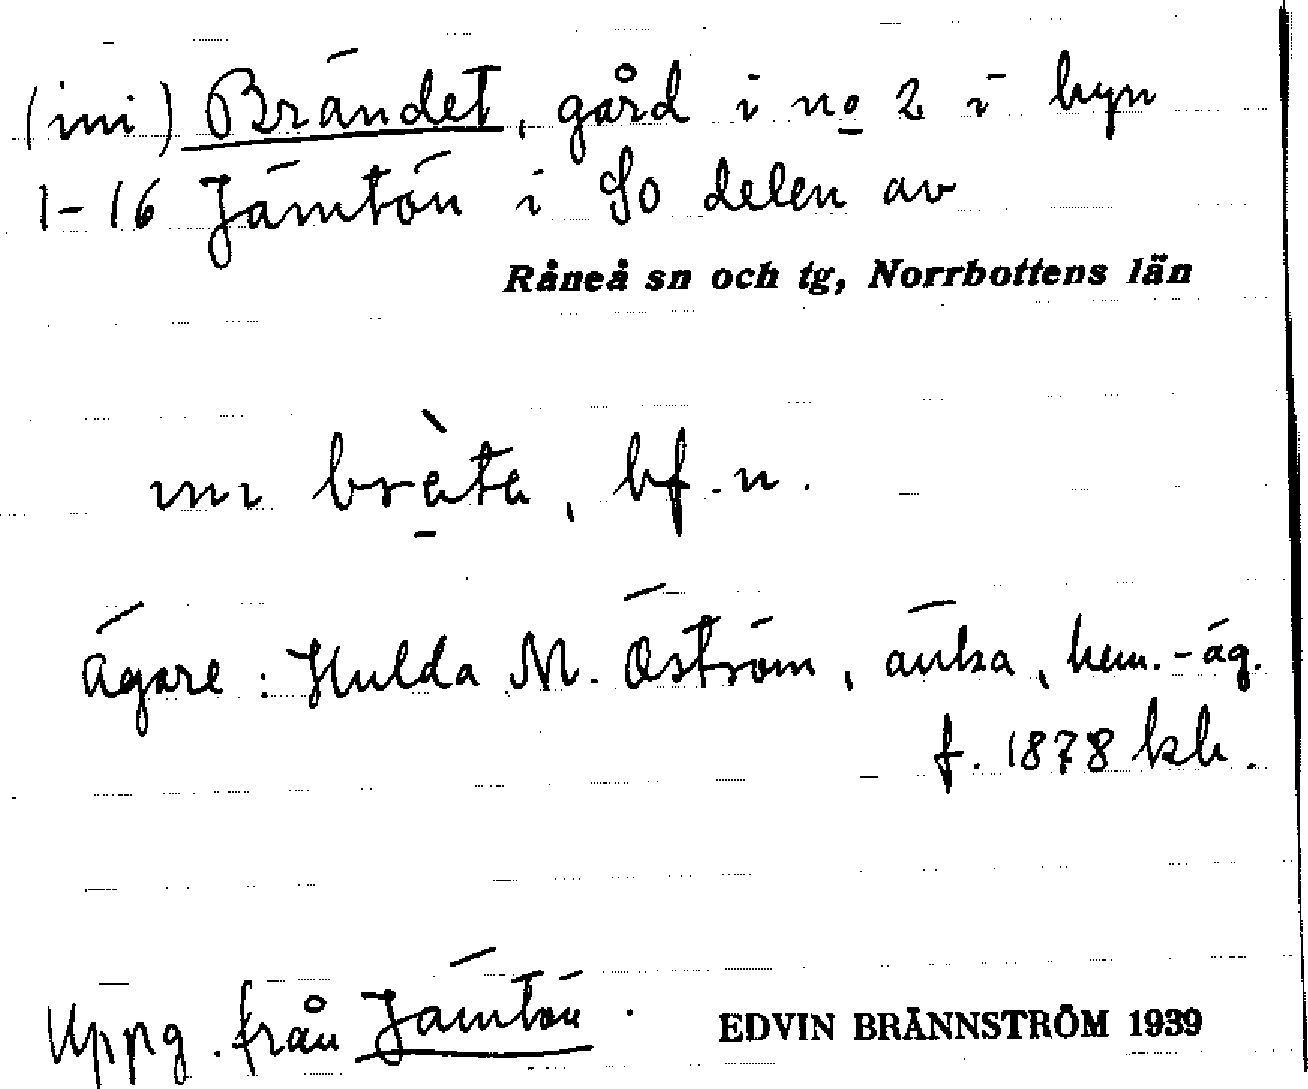 (ini) Brändet, gård i no 2 i byn
1-16 Jämtön i So delen av
Råneå sn och tg, Norrbottens län
ini brèta, bf. n.
ägare: Hulda M. Öström, änka, hem.-äg.
f. 1878 kh.
Uppg. från Jämtön. EDVIN BRÄNNSTRÖM 1939